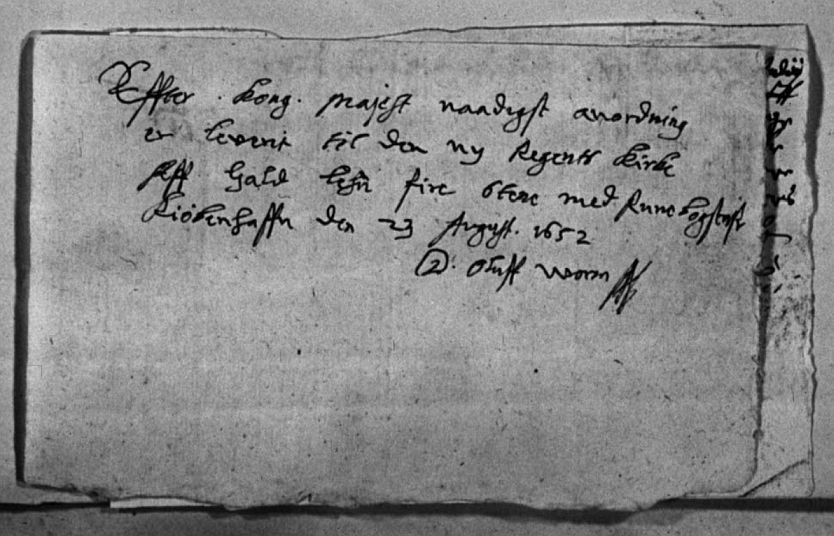 Effter Kong. Majest naadigst anordning
er leverit til den ny Regents Kirke
aff fire stene med Runebogstafr
Kiöbenhaffn den 23 August. 1652
D. Oluff Worm